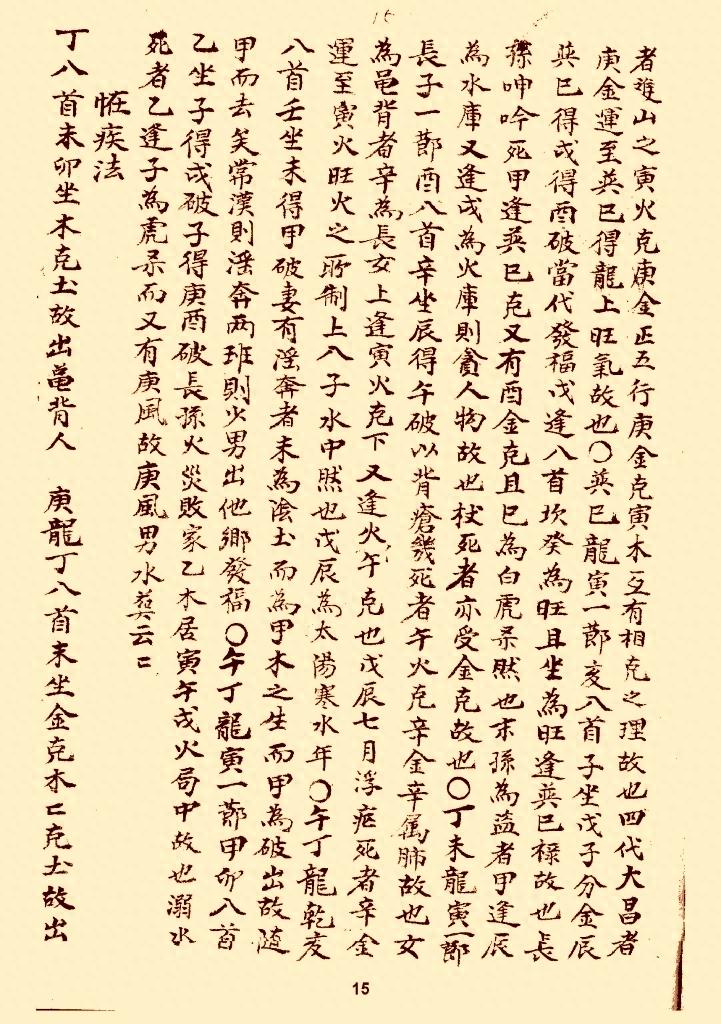 15
者雙山之寅火克庚金正五行庚金克寅木互有相克之理故也四代大昌者
庚金運至巽巳得龍上旺氣故也〇巽巳龍寅一節亥八首子坐戊子分金辰
巽巳得戌得酉破當代發福戊逢八首坎癸為旺且坐為旺逢巽巳祿故也長
孫呻吟死甲逢巽巳克又有酉金克且巳為白虎杀然也末孫為盜者甲逢辰
為水庫又逢戌為火庫則貪人物故也杖死者亦受金克故也〇丁未龍寅一節
長子一節酉八首辛坐辰得午破以背瘡幾死者午火克辛金辛属肺故也女
為黽背者辛為長女上逢寅火克下又逢火午克也戊辰七月浮疟死者辛金
運至寅火旺火之所制上八子水中然也戊辰為太陽寒水年〇午丁龍乾亥
八首壬坐未得甲破妻有淫奔者未為陰土而為甲木之生而甲為破出故隨
甲而去笑常漢則淫奔两班則少男出他鄉發福〇午丁龍寅一節甲卯八首
乙坐子得戌破子得庚酉破長孫火災敗家乙木居寅午戌火局中故也溺水
死者乙逢子為虎杀而又有庚風故庚風男水葬云〻
恠疾法
丁八首未卯坐木克土故出黽背人　庚龍丁八首末坐金克木〻克土故出
15